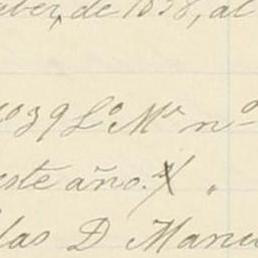 de 1838, al
039 Lo Mr no
este año.
las D Manu